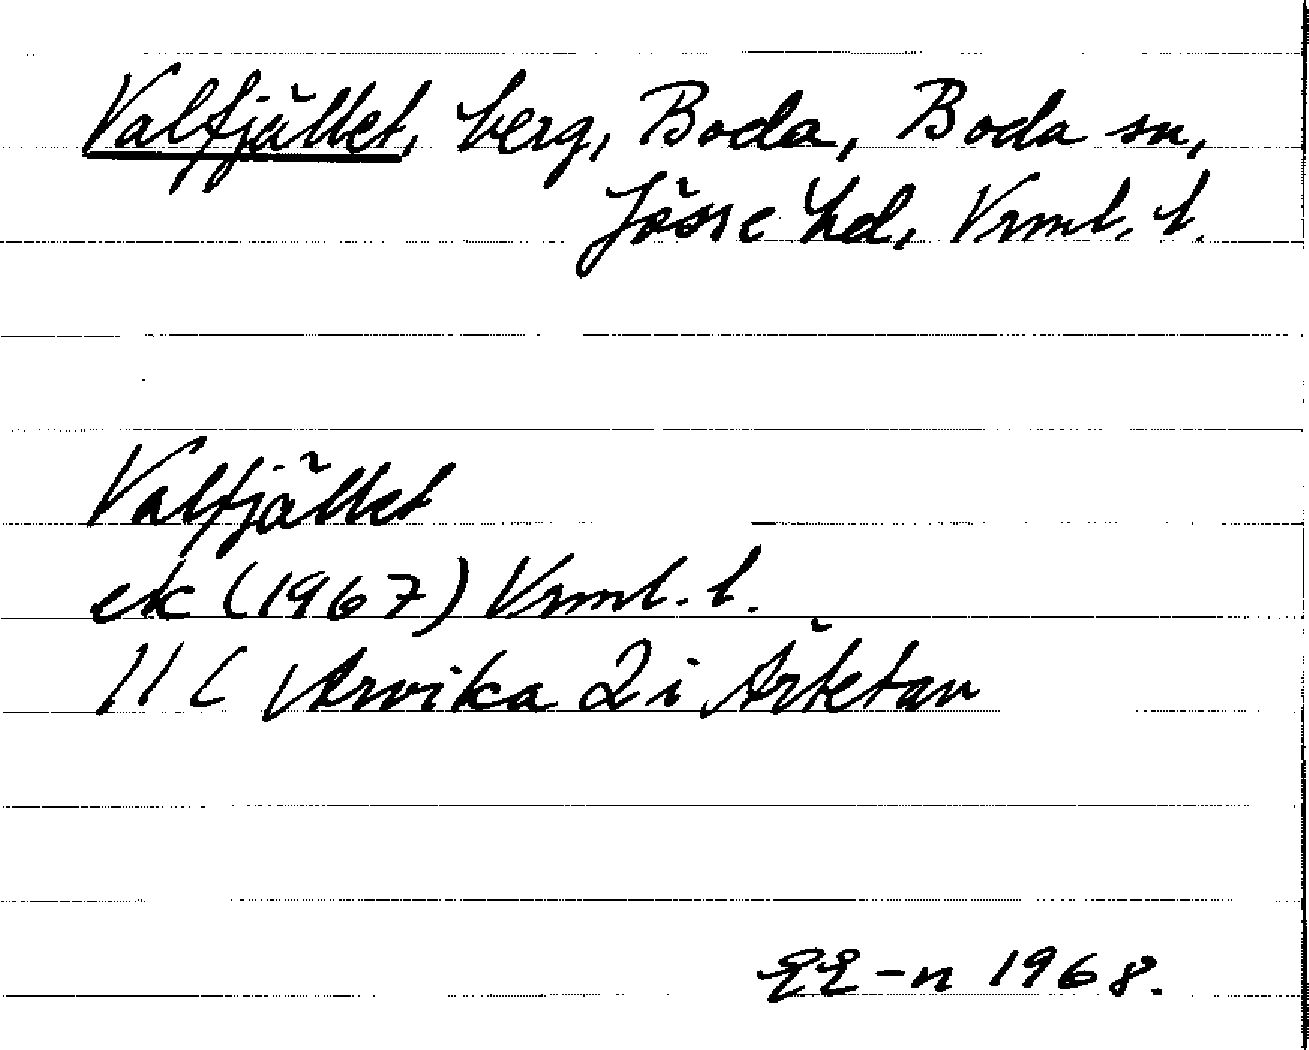 Valfjället, berg, Boda, Boda sn,
Jösse hd, Vrml. l.
Valfjället
ek (1967) Vrml. l.
11 C Arvika 2 i Årtetan
EE-n 1968.